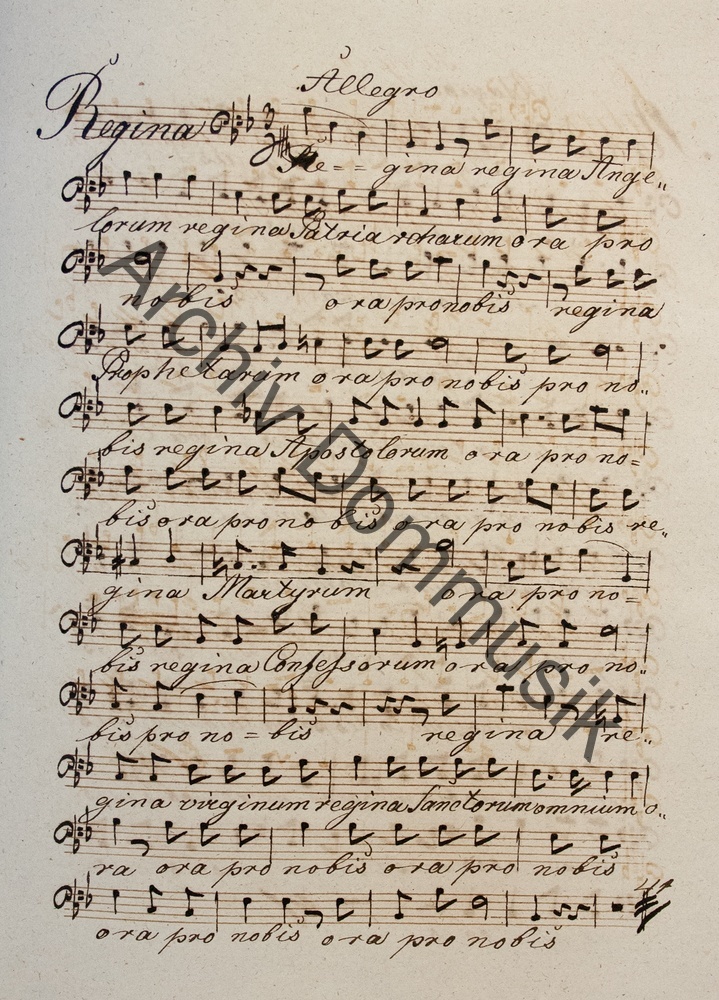 Allegro
Regina 3
Re== gina regina Ange„
lorum regina Patriarcharum ora pro
nobis ora pro nobis regina
Prophetarum ora pro nobis pro no„
bis regina Apostolorum ora pro no=
bis ora pro nobis ora pro nobis re„
gina Martyrum ora pro no=
bis regina Confessorum ora pro no„
bis pro no=bis regina re„
gina virginum regina Sanctorum omnium o„
ra ora pro nobis ora pro nobis
ora pro nobis ora pro nobis
Archiv Dommusik